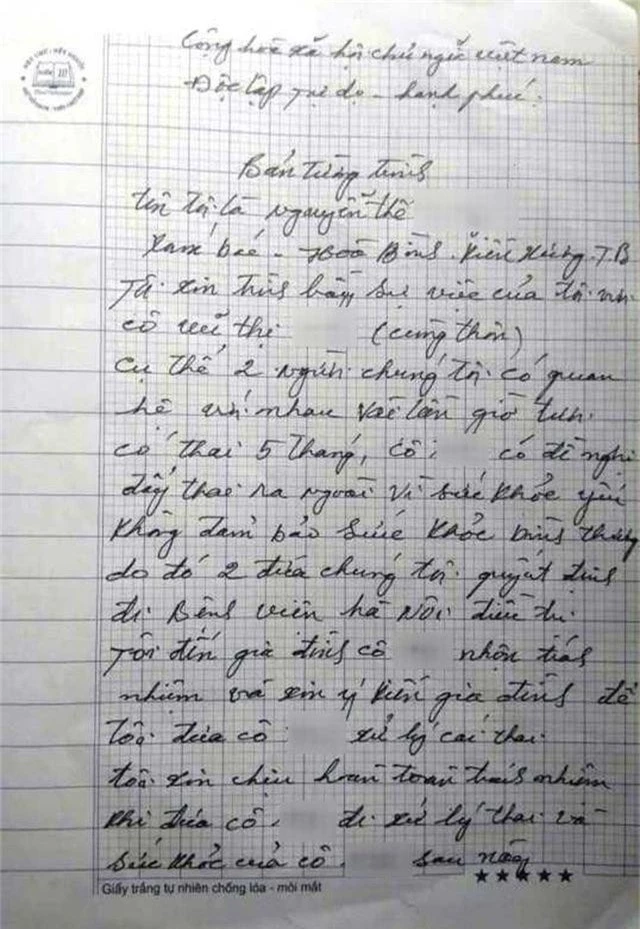 Cộng hoà xã hội chủ ngĩa việt nam
Độc lập Tự do - hạnh phúc
Bản tường trình
tên tôi là Nguyễn thế
Nam bác - Bình
Tôi xin trình bầy sự việc của tôi và
cô vũ thị (cùng thôn)
cụ thể 2 người chúng tôi có quan
hệ với nhau vài lần giờ
có thai 5 tháng, Cô có đề nghị
đẩy thai ra ngoài vì sức khỏe yếu
không đảm bảo sức khỏe bình thường
do đó 2 đứa chúng tôi quyết định
đi Bệnh viện hà Nội điều trị
Tôi đến gia đình cô nhận trách
nhiệm và xin ý kiến gia đình để
tôi đưa cô xử lý cái thai
tôi xin chịu hoàn toàn trách nhiệm
khi đưa cô đi xử lý thai và
sức khỏe của cô sau này
Giấy trắng tự nhiên chống lóa - mỏi mắt